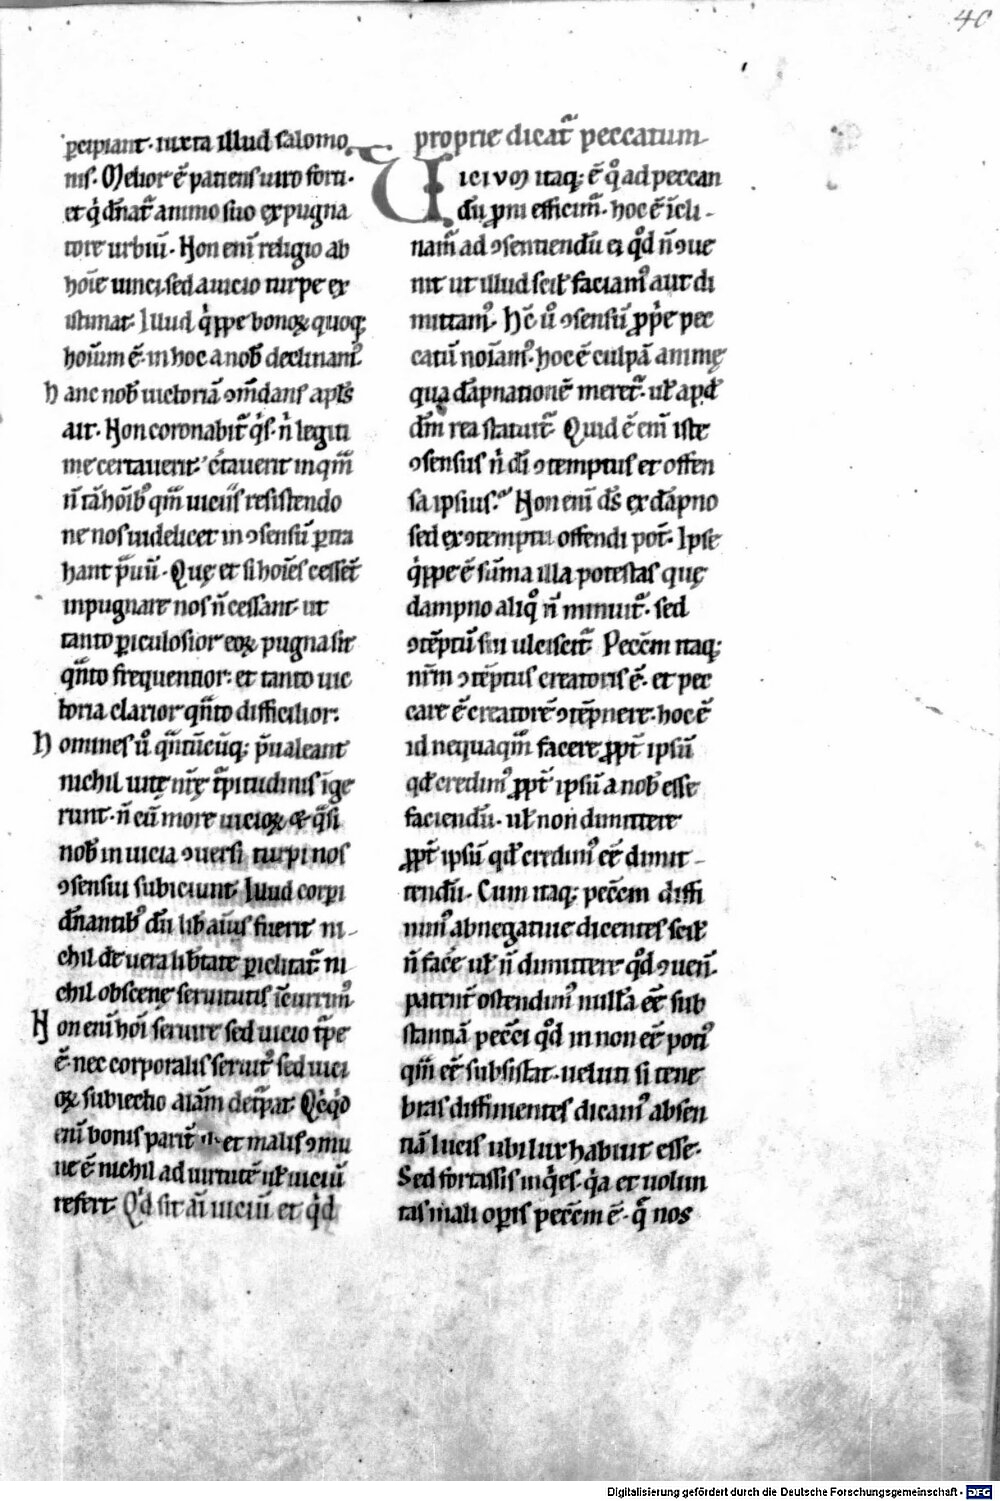 40
ꝑcipiant · iuxta illud salomo
nis · Melior ē patiens uiro forti ·
et q̇ dn̄at᷑ animo suo expugna
tore urbiū · Non enī religio ab
hoīe uinci sed a uicio turpe ex
istimat · Illud q̇ppe bonoꝝ quoq;
hoīum ē · in hoc a nob̄ declinam᷒
hanc nob̄ uictoriā ꝯm̄dans apl̄s
ait · Non coronabit᷑ q̇s · n̄ legiti
me certauerit · c̄tauerit inqm̄
n̄ tā hoīb᷒ qm̄ uiciis resistendo
ne nos uidelicet in ꝯsensū ꝑtra
hant p̄uū · Quę et si hoīes cessēt
inpugnare nos n̄ cessant · ut
tanto ꝑiculosior eoꝝ pugna sit
qn̄to frequentior : et tanto uic
toria clarior qn̄to difficilior :
homines u᷒ qn̄tūcūq; p̄ualeant
nichil uitę nr̄ę t᷑pitudinis īge
runt · n̄ cū more uicioꝝ & q̇si
nob̄ in uicia ꝯuersi turpi nos
ꝯsensui subiciunt · Illud corpi
dn̄antib᷒ dū lib̄ aīus fuerit ni-
chil de uera lib̄tate ꝑiclitat᷑ ni
chil obscenę seruitutis īcurrim᷒
Non enī hoī seruire sed uicio t᷑pe
ē · nec corporalis seruit᷒ sed uici
oꝝ subiectio aīam det᷑pat · Qc̄q̇d
enī bonis parit᷑ et malis ꝯmu
ne ē nichil ad uirtutē ul̄ uiciū
refert · Q̇d sit aī uiciū et q̇d
proprie dicat᷑ peccatum
Uicivm itaq; ē qͦ ad peccan
dū pni efficim᷑ · hoc ē īcli-
nam᷑ ad ꝯsentiendū ei qͦd n̄ ꝯue
nit ut illud scil̄ faciam᷒ aut di
mittam᷒ · Hc̄ u᷒ ꝯsensū ꝓp̄e pec
catū noīam᷒ · hoc ē culpā animę
qua dāpnationē meret᷑ · ul̄ apd̄
dm̄ rea statuit᷑ · Quid ē enī iste
ꝯsensus n̄ dī ꝯtemptus et offen
sa ipsius · Non enī ds̄ ex dāpno
sed ex ꝯtemptu offendi pot̄ · Ipse
q̇ppe ē sūma illa potestas quę
dampno aliqͦ n̄ minuit᷑ · sed
ꝯtēptū sui ulciscit᷑ Pecc̄m itaq;
nr̄m ꝯtēptus creatoris ē · et pec
care ē creatorē ꝯtēpnere · hoc ē
id nequaqm̄ facere ꝓpt̄ ipsū
qd̄ credim᷒ ꝓpt̄ ipsū a nob̄ esse
faciendū · ul̄ non dimittere
ꝓpt̄ ipsū qd̄ credim᷒ ēē dimit-
tendū · Cum itaq; pecc̄m diffi
nim᷒ abnegatiue dicentes scil̄
n̄ facē ul̄ n̄ dimittere qͦd ꝯuen̄ ·
patent᷑ ostendim᷒ nullā ēē sub
stantiā pecc̄i qͦd in non ēē poti᷒
qm̄ ēē subsistat · ueluti si tene
bras diffinientes dicam᷒ absen
tiā lucis ubi lux habuit esse ·
Sed fortassis inq̇es · q̇a et uolun
tas mali opis pecc̄m ē · q̄ nos
Digitalisierung gefördert durch die Deutsche Forschungsgemeinschaft - DFG